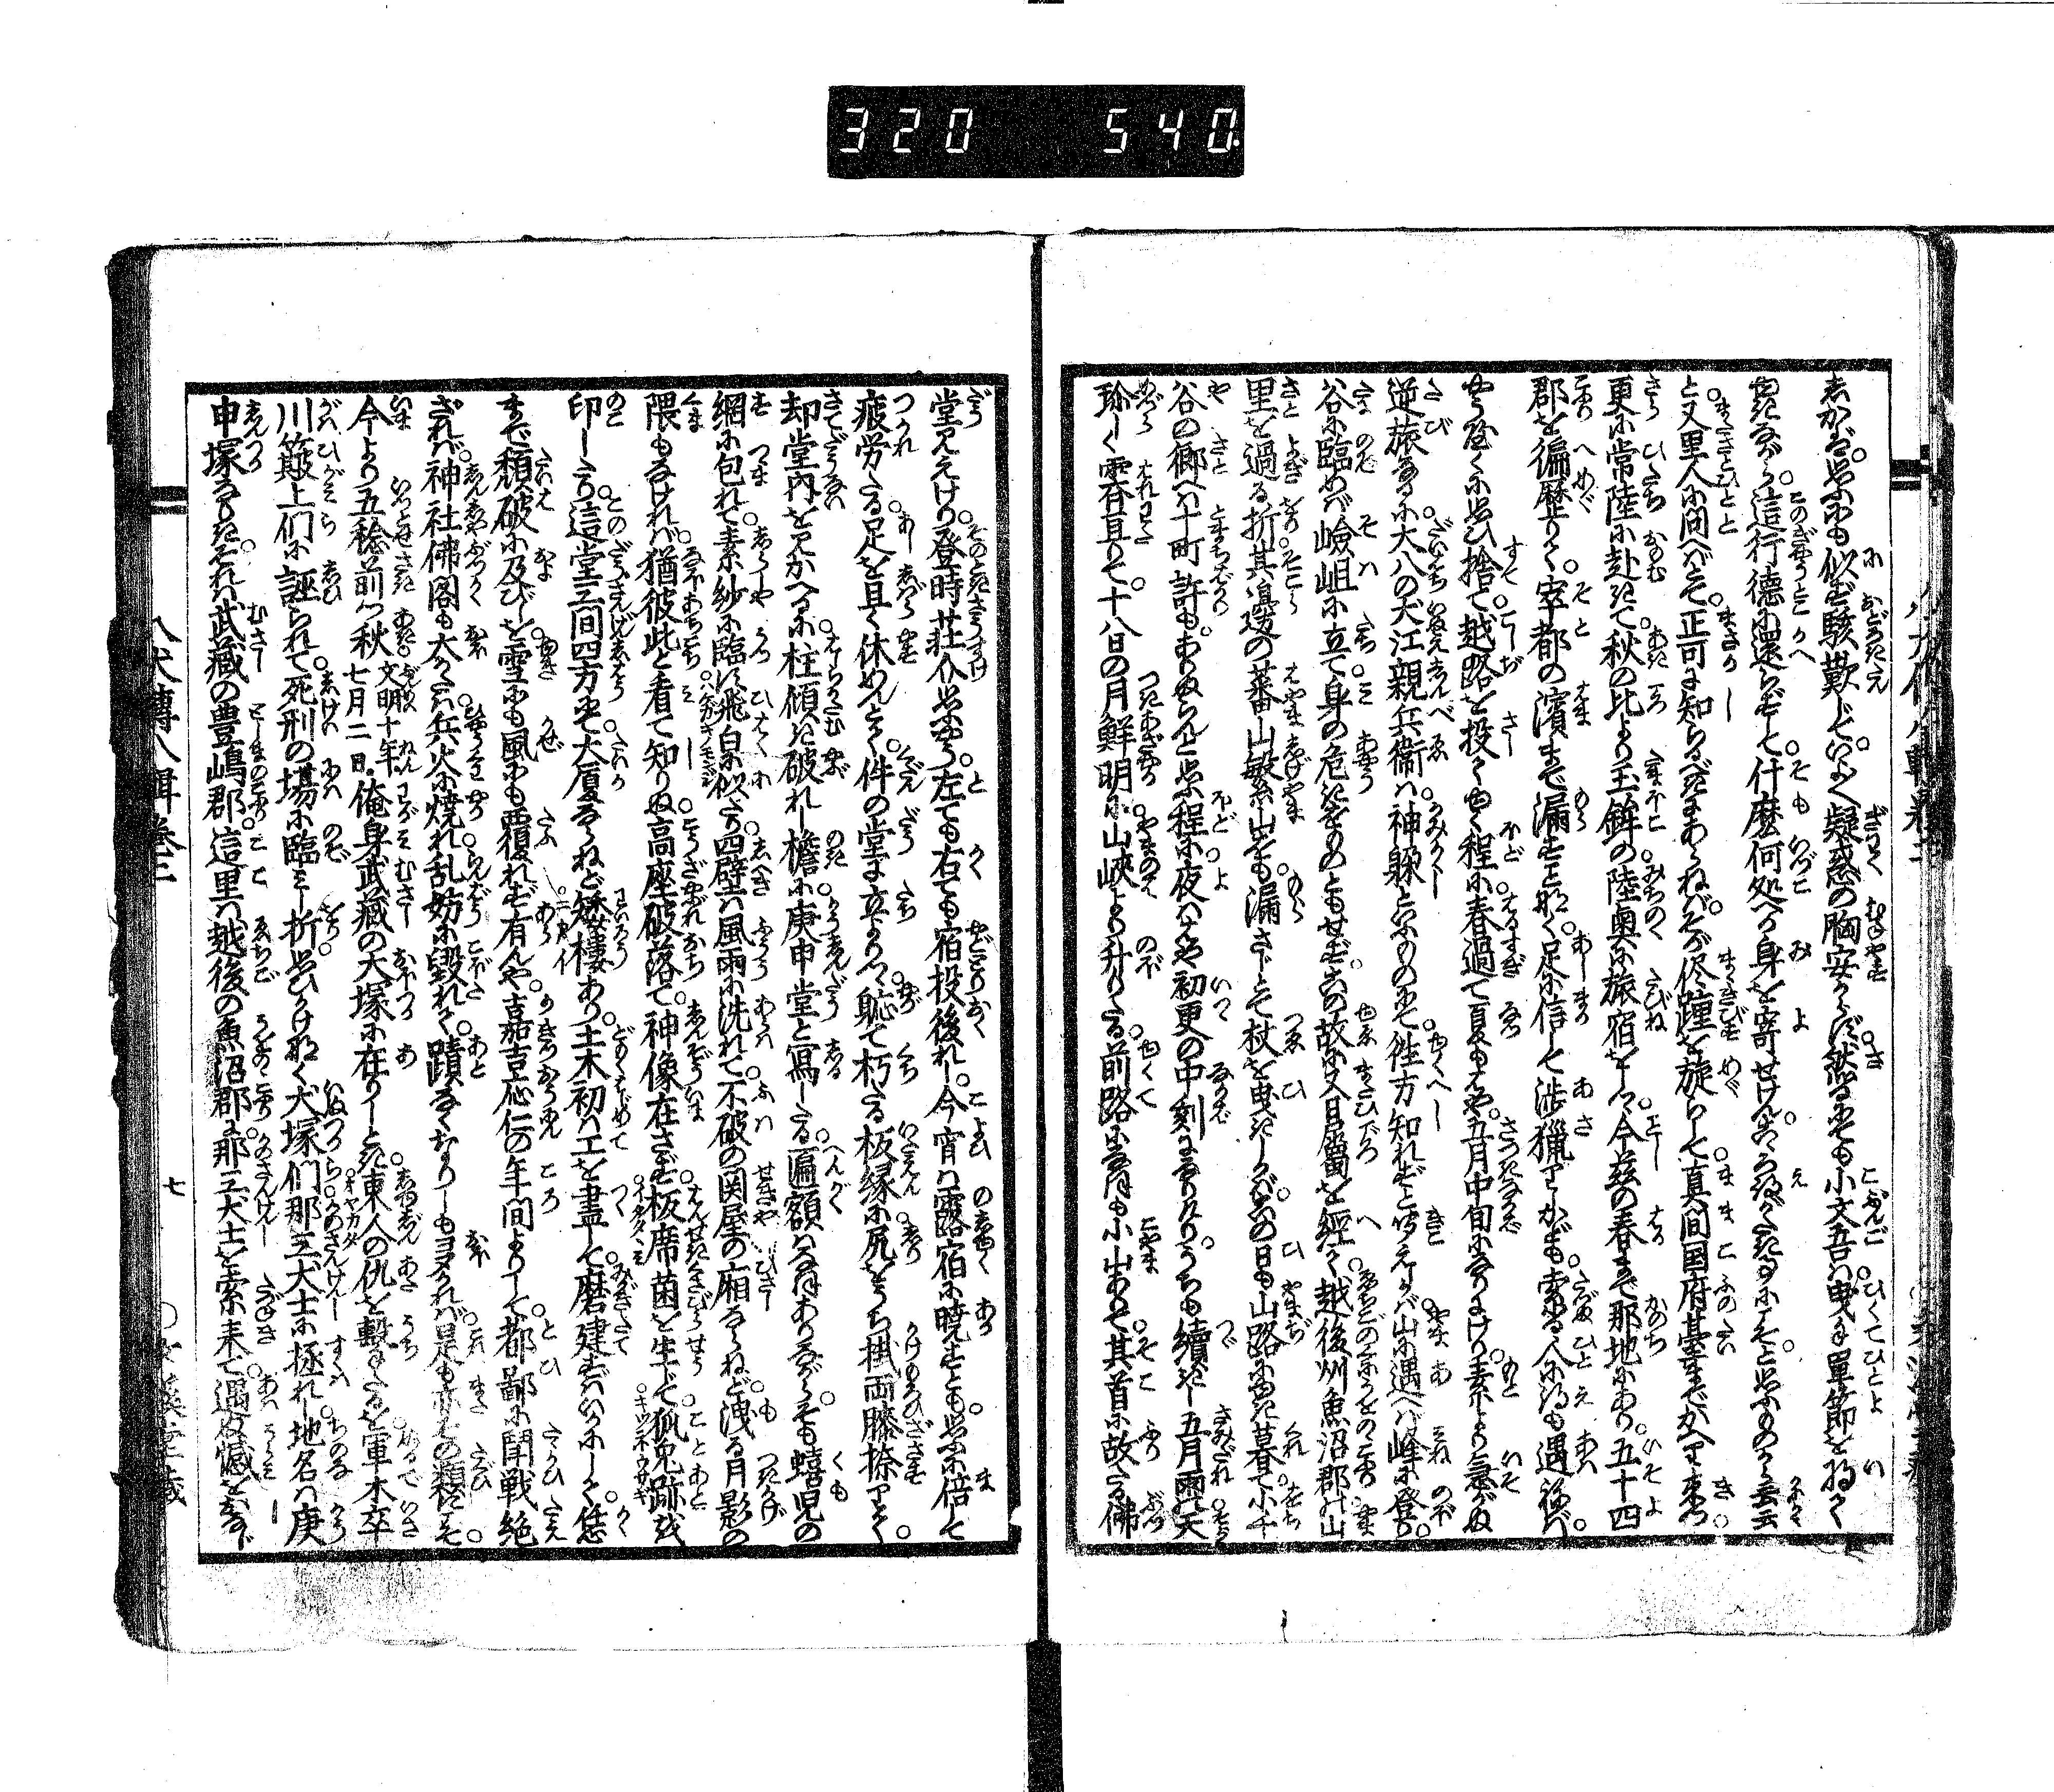 320 540
しかば。思ふにも似ず駭歎じて。いよいよ疑惑の胸安からず。然るにても小文吾は。曳手單節を将て
ゆきながら。這行徳に還らずして。什麼何処へ身を寄せけん。こころ得がたき事にこそ。と思ふものから云云
と又里人に問べくて。正可に知るべきにあらねば。そが侭踵を旋らして。真間国府臺までかへり来つ。
更に常陸に赴きて。秋の比より玉鉾の。陸奥に旅宿をしつ。今茲の春まで那地にあり。五十四
郡を徧歴りて。率都の濱まで漏すことなく。足に信して渉獵りしかども。索る人には遇ざれば。
やうやくに思ひ捨て。越路を投てゆく程に。春過て夏もはや。五月中旬になりにけり。素より急がぬ
逆旅なるに。犬八の犬江親兵衛は。神躱といふものにて。往方知れずと聞えしかば。山に遇へば峰に登り。
谷に臨めば嶮岨に立て。身の危きをものともせず。この故に又日属を經て。越後州魚沼郡の山
里を過る折。其邊の葉山繁山をも。漏さじとて杖を曳きしかば。この日も山路にゆき暮て。小千
谷の郷へは十町許もあるらんと思ふ程に。夜ははや初更の中刻になりけり。うちも續きし五月雨の天
珍しく霽亘りて。十八日の月鮮明に。山峽より升りたる。前路に青きも小山あり。其首に故たる佛
堂見えけり。登時荘介思ふやう。左ても右ても宿投後れし。今宵は露宿に曉すとも。思ふに倍して
疲労たる。足を且く休めんとて。件の堂に立よりつ。軈て朽たる板縁に。尻をうち掛両膝捺りて。
却堂内を見かへるに。柱傾き破れし檐に。庚申堂と寫したる。匾額はなほありながら。そも蟢児の
網に包れて。素紗に臨き飛白に似たり。四壁は風雨に洗れて。不破の関屋の廂ならねど。洩る月影の
隈もなければ。猶彼此と看て知りぬ。高座破落て。神像在さず。板席菌を生じて。狐兎跡を
印したり。這堂三間四方にて。大廈ならねど矮樓あり。土木初は工を盡して。磨建ずばいかにして。恁
まで頽破に及びしを。雪にも風にも覆れず有んや。嘉吉応仁の年間よりして。都鄙に鬪戦絶
ざれば。神社佛閣も大かたは。兵火に焼れ乱妨に毀れて。蹟なくなりしも多かれば。是も亦その類にこそ。
今より五稔前つ秋 文明十年七月二日。俺身武藏の大塚に在りしとき。東人の仇を撃しを。軍木卒
川簸上们に誣られて。死刑の場に臨みし折。思ひかけなく犬塚们。那三犬士に拯れし。地名は庚
申塚なりき。それは武藏の豊嶋郡。這里は越後の魚沼郡に。那三犬士を索来て。遇ぬ憾をなほ
八犬傳八輯巻三
七